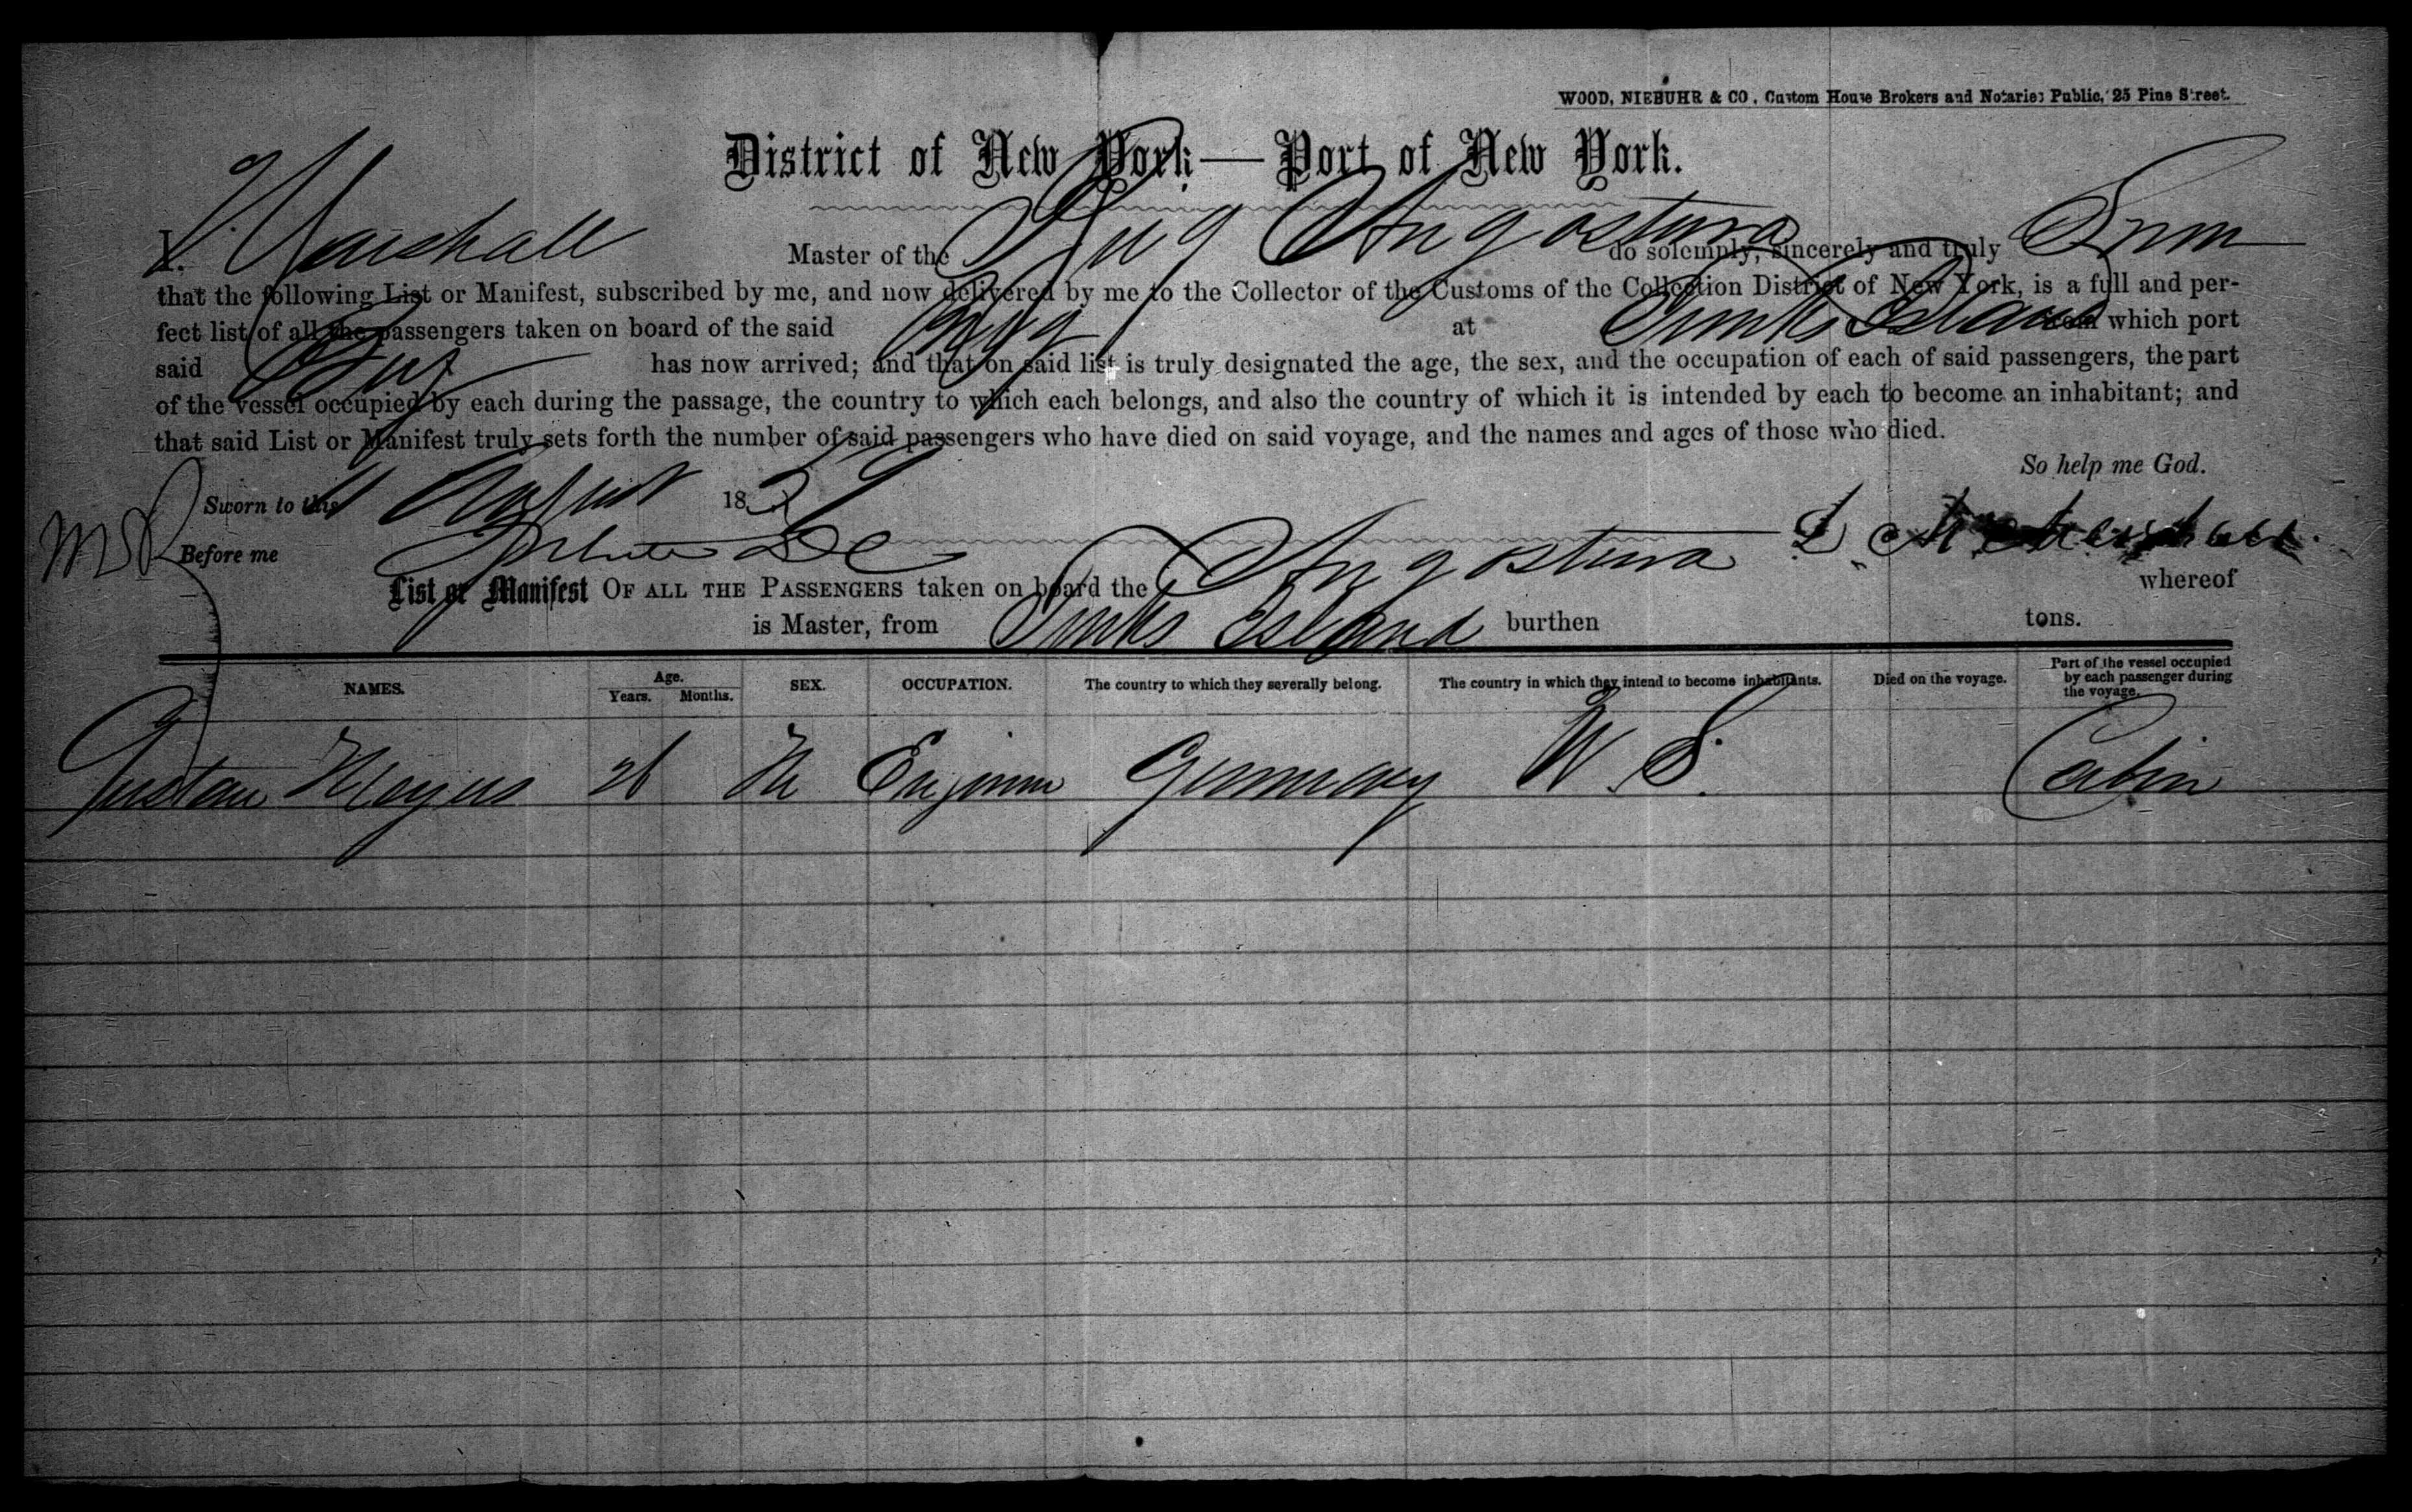 WOOD, NIEBUHR & CO., Custom House Brokers and Notaries Public, 25 Pine Street.
District of New York — Port of New York.
I. Marshall Master of the Brig Angostura do solemnly, sincerely and truly Swear
that the following List or Manifest, subscribed by me, and now delivered by me to the Collector of the Customs of the Collection District of New York, is a full and per-
fect list of all the passengers taken on board of the said Brig at Turks Island from which port
said Brig has now arrived; and that on said list is truly designated the age, the sex, and the occupation of each of said passengers, the part
of the vessel occupied by each during the passage, the country to which each belongs, and also the country of which it is intended by each to become an inhabitant; and
that said List or Manifest truly sets forth the number of said passengers who have died on said voyage, and the names and ages of those who died.
So help me God.
Sworn to this 11 August 1859
Before me
List or Manifest OF ALL THE PASSENGERS taken on board the Angostura whereof
is Master, from Turks Island burthen tons.
NAMES. Age. Years. Months. SEX. OCCUPATION. The country to which they severally belong. The country in which they intend to become inhabitants. Died on the voyage. Part of the vessel occupied by each passenger during the voyage.
Gustav Meyers 26 M Engineer Germany U. S. Cabin